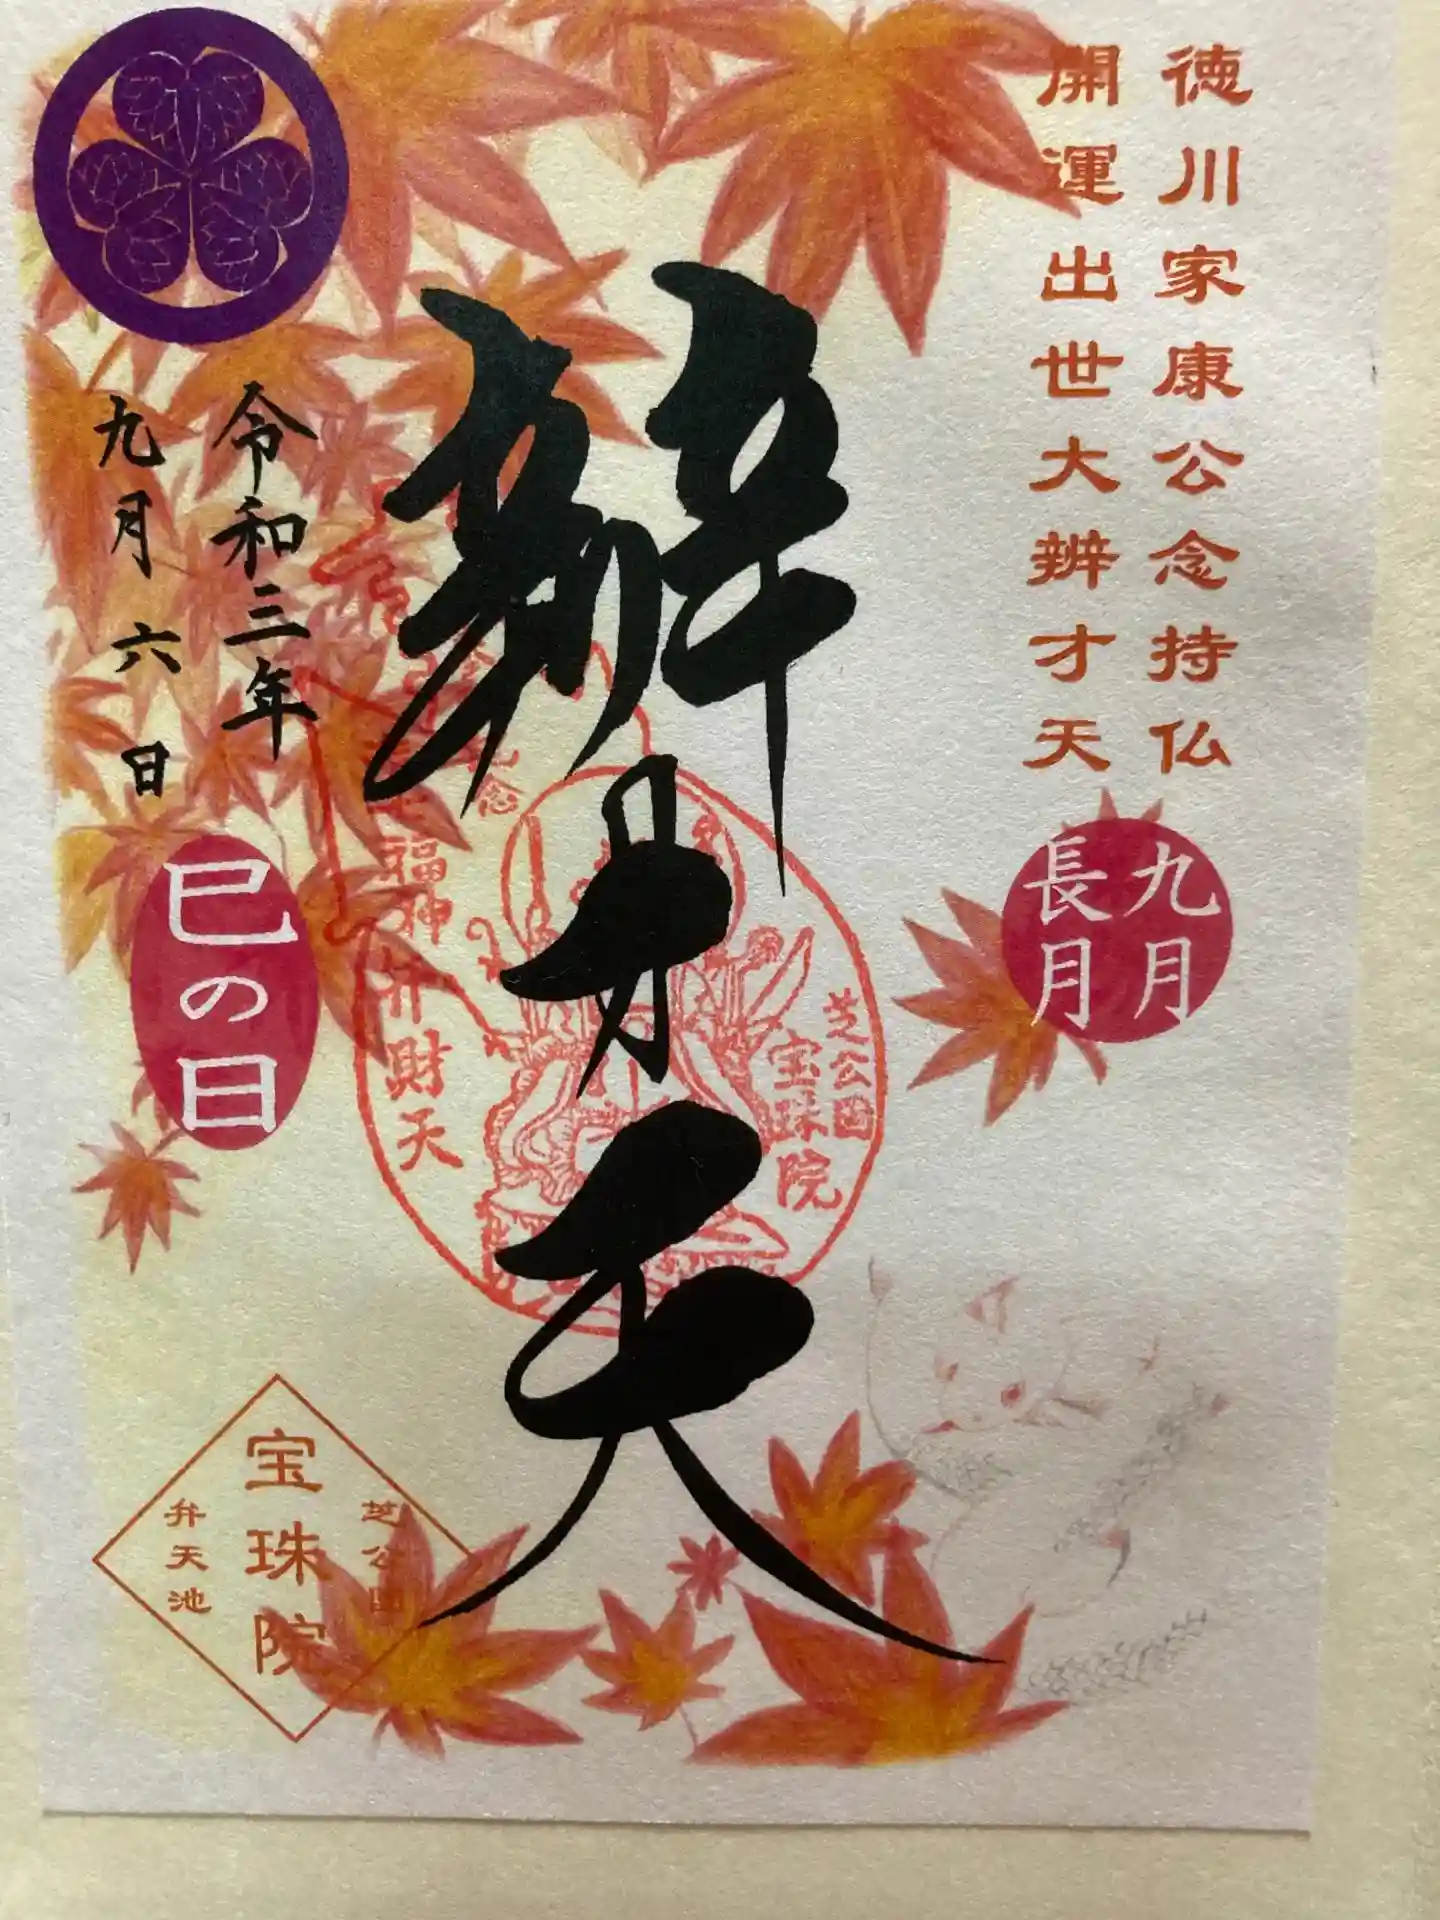 徳川家康公念持仏
開運出世大辨才天
九月
長月
辨才天
芝公園
宝珠院
福神弁財天
令和三年
九月六日
巳の日
芝公園
宝珠院
弁天池